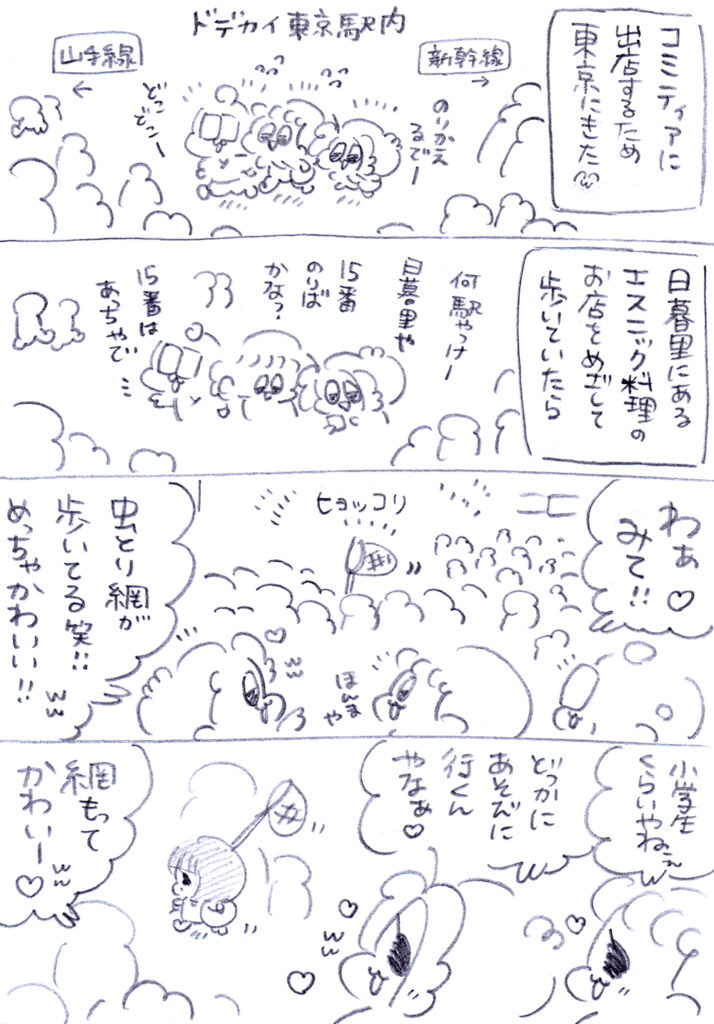 コミティアに
出店するため
東京にきた
ドデカイ東京駅内
新幹線
→
のりかえ
るでー
山手線
←
どこ
どこー
日暮里にある
エスニック料理の
お店をめざして
歩いていたら
何駅やっけー
日暮里や
15番
のりば
かな？
15番は
あっちやで
わぁ♡
みて!!
ヒョッコリ
ほんま
や
虫とり網が
歩いてる笑!!
めっちゃかわいい!!
ww
小学生
くらいやね
どっかに
あそびに
行くん
やなぁ♡
ww
網もって
かわいー♡
ww